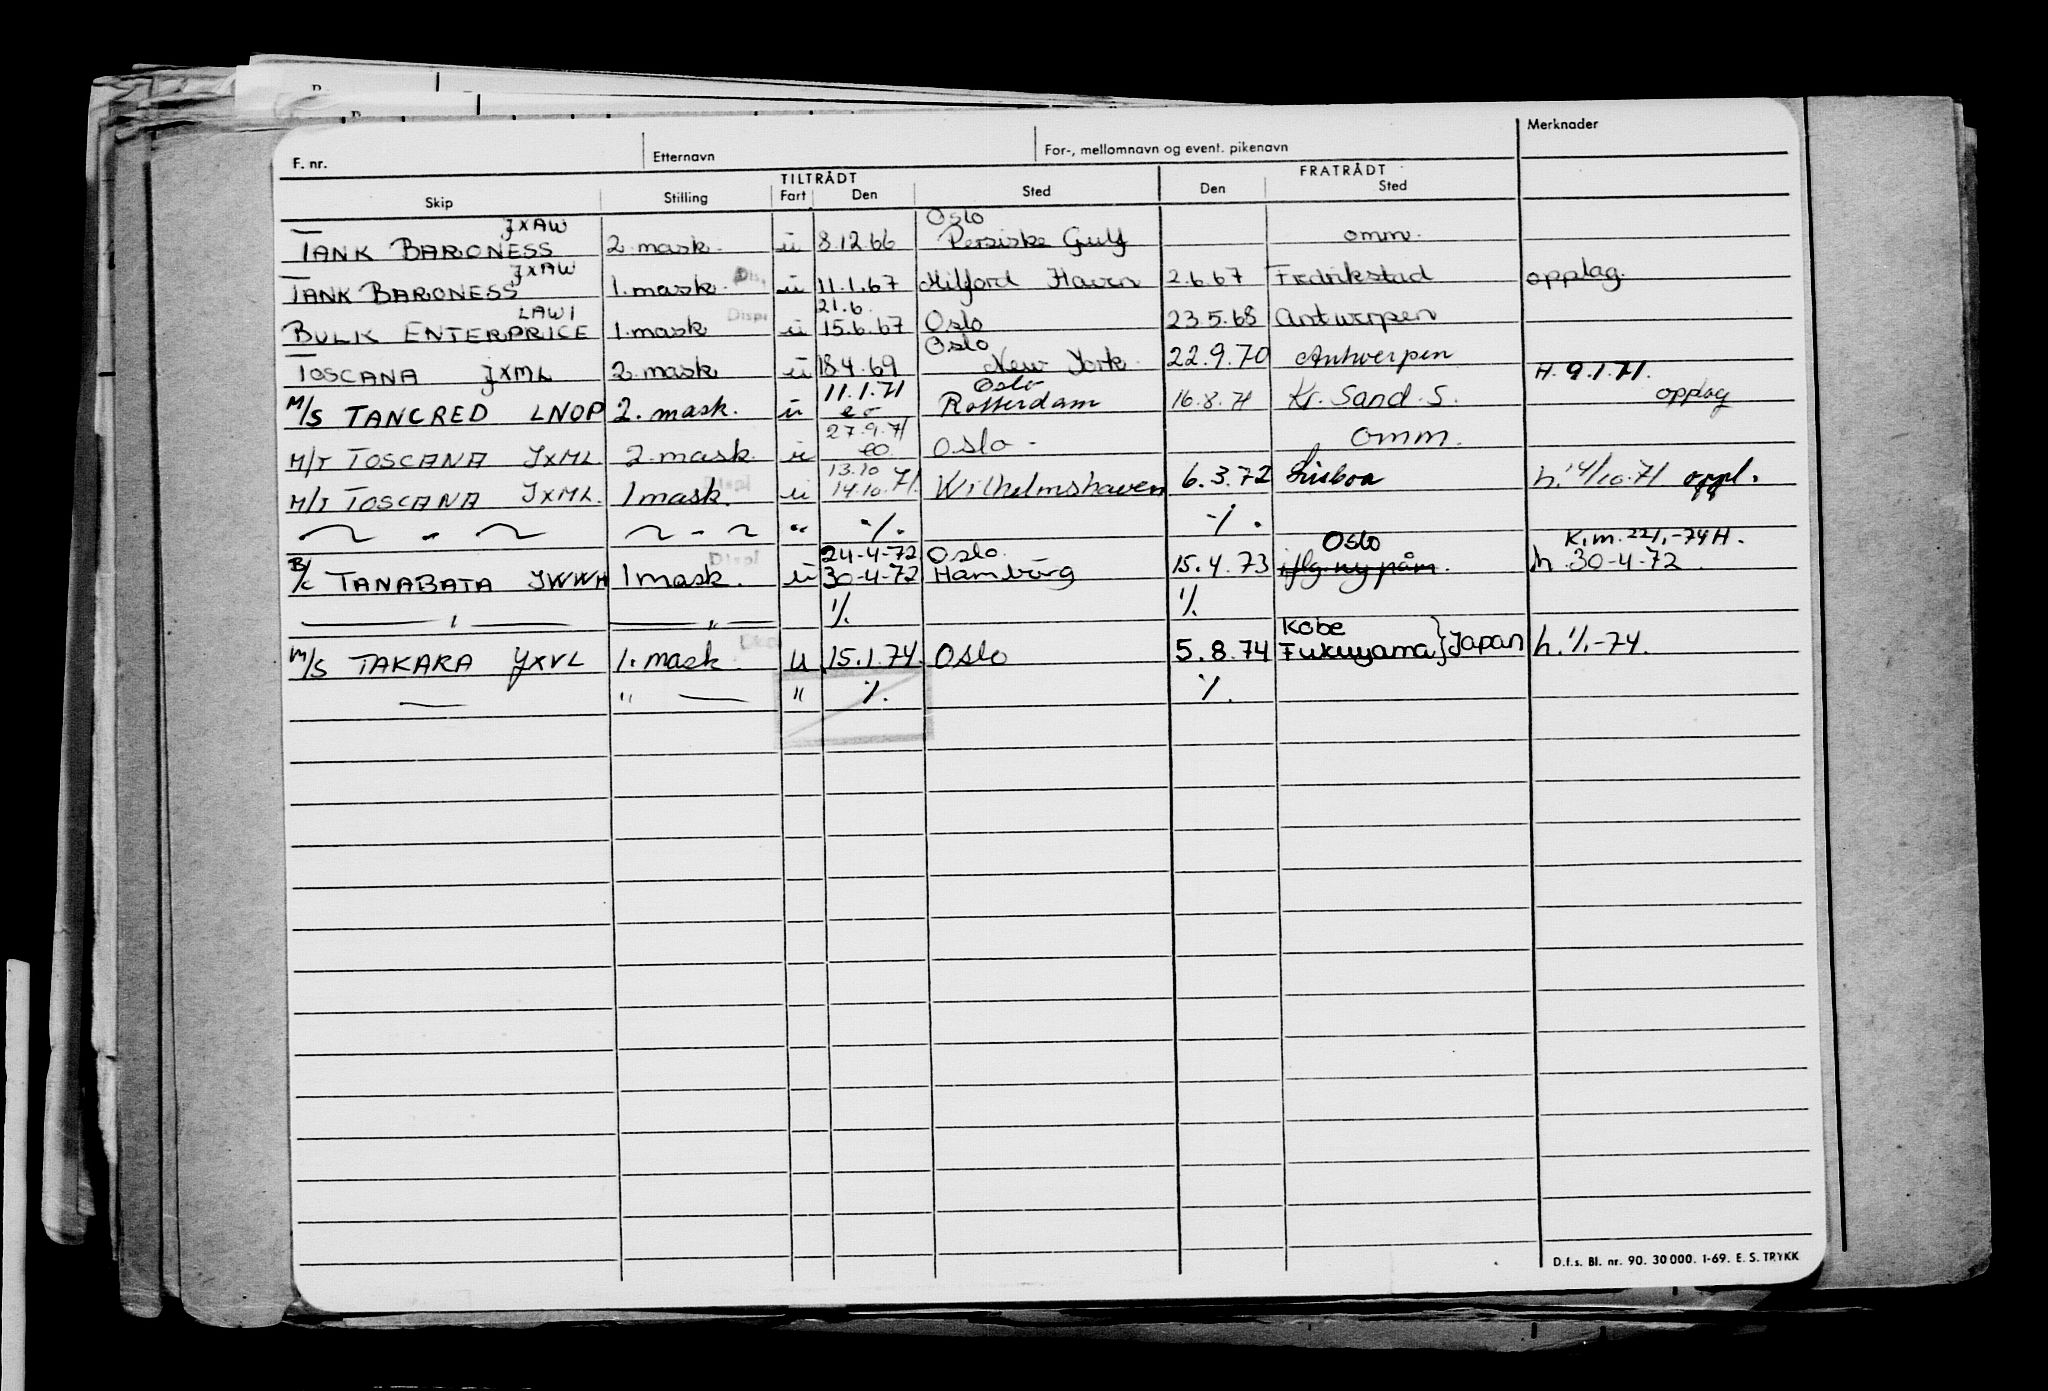 F. nr. Etternavn For-, mellomnavn og event. pikenavn Merknader
TILTRÅDT FRATRÅDT
Skip Stilling Fart Den Sted Den Sted
JXAW Oslo
TANK BARONESS 2. mask. u 8.12.66 Persiske Gulf omm.
JXAW
TANK BARONESS 1. mask. u 11.1.67 Milford Haven 2.6.67 Fredrikstad opplag.
LAWI Displ 21.6.
BULK ENTERPRICE 1. mask u 15.6.67 Oslo 23.5.68 Antwerpen
Oslo
TOSCANA JXML 2. mask u 18.4.69 New York. 22.9.70 Antwerpen H. 9.1.71.
11.1.71 Oslo
M/S TANCRED LNOP 2. mask. u eo Rotterdam 16.8.71 Kr. Sand. S. opplag
27.9.71
M/T TOSCANA JXML. 2. mask. u eo Oslo - omm.
Displ 13.10
M/T TOSCANA JXML. 1 mask. u 14.10.71. Wilhelmshaven 6.3.72 Lisboa h. 14/10.71 oppl.
— " — — " — " ·/. ·/.
Displ 24-4-72 Oslo. Oslo K.m. 22/1-74 H.
B/C TANABATA JWWH 1 mask. u 30-4-72 Hamburg 15.4.73 iflg. ny påm. h. 30-4-72.
— " — — " — ·/. ·/.
Kobe
M/S TAKARA JXVL 1. mask. u 15.1.74. Oslo 5.8.74 Fukuyama } Japan h. 1/1-74.
— " — " ·/. ·/.
D.f.s. Bl. nr. 90. 30 000. 1-69. E. S. TRYKK